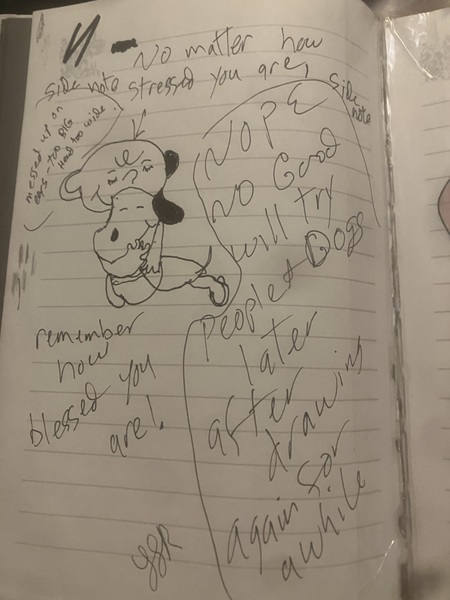 No matter how
stressed you are,
side note
messed up on
ears - too BIG
Head too wide
remember
how
blessed you
are!
side
note
NOPE
NO Good
will try
People + Dogs
later
after
drawing
again for
awhile